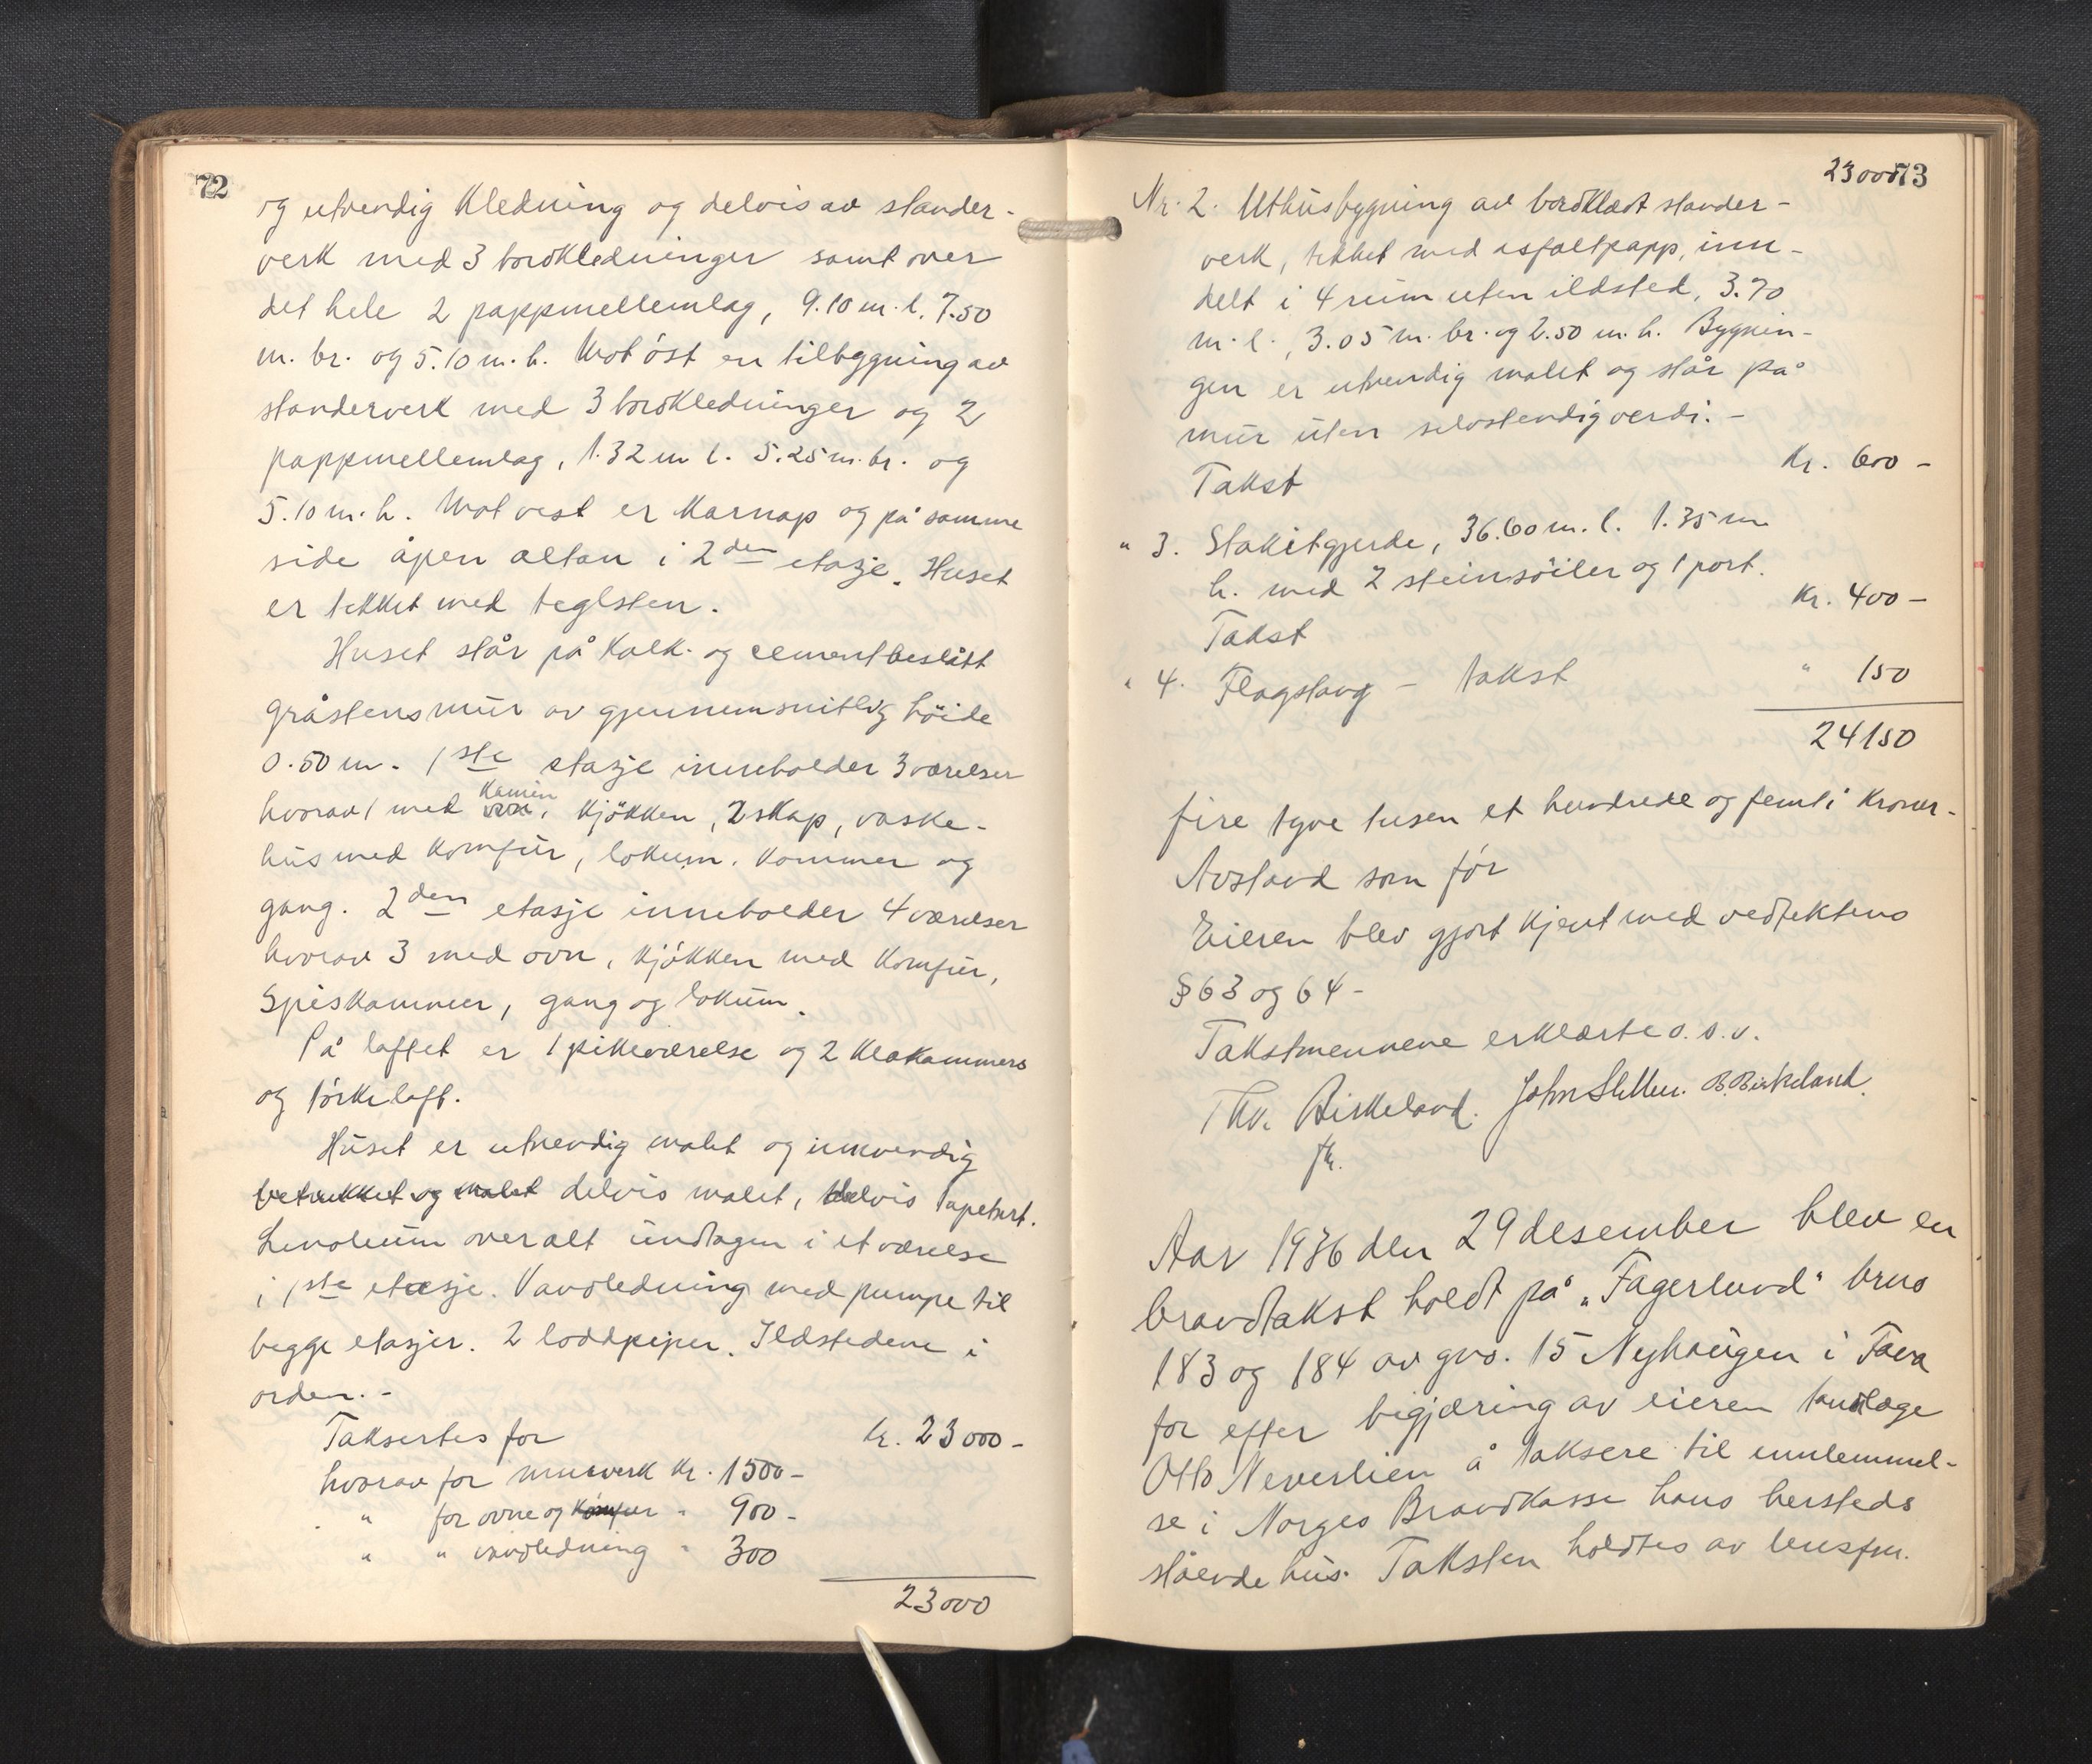 72
og utvendig kledning og delvis av stander-
verk med 3 bordkledninger samt over
det hele 2 pappmellemlag, 9.10 m. l. 7.50
m. br. og 5.10 m. h. Mot öst en tilbygning av
standerverk med 3 bordkledninger og 2
pappmellemlag, 1.32 m l. 5.25 m. br. og
5.10 m. h. Mot vest er karnap og på samme
side åpen altan i 2den etasje. Huset
er tekket med teglsten.
Huset står på kalk- og cementbeslått
gråstensmur av gjennemsnitlig höide
0.50 m. 1ste etasje inneholder 3 værelser
hvorav 1 med ovn kamin, kjökken, 2 skap, vaske-
hus med komfur, lokum, kammer og
gang. 2den etasje inneholder 4 værelser
hvorav 3 med ovn, kjökken med komfur,
Spiskammer, gang og lokum.
På loftet er 1 pikeværelse og 2 klekammers
og törkeloft.
Huset er utvendig malet og innvendig
betrukket og malet delvis malet, delvis tapetsert.
Linoleum overalt undtagen i et værelse
i 1ste etasje. Vandledning med pumpe til
begge etasjer. 2 loddpiper. Ildstedene i
orden. -
Taksertes for kr. 23000 -
hvorav for murverk kr. 1500 -
" for ovne og komfur " 900 -
" " vandledning " 300
23000
23000 73
Nr. 2. Uthusbygning av bordklædt stander-
verk, tekket med asfaltpapp, inn-
delt i 4 rum uten ildsted, 3.70
m. l., 3.05 m. br. og 2.50 m. h. Bygnin-
gen er utvendig malet og står på
mur uten selvstendig verdi. -
Takst Kr. 600 -
" 3. Stakitgjerde, 36.60 m. l. 1.35 m
h. med 2 steinsöiler og 1 port.
Takst Kr. 400 -
" 4. Flagstang - takst " 150
24150
fire tyve tusen et hundrede og femti kroner -
Avstand som för
Eieren blev gjort kjent med vedtektens
§ 63 og 64 -
Takstmennene erklærte o. s. v.
Thv. Birkeland. John Sletten. B. Birkeland.
fh.
Aar 1936 den 29 desember blev en
brandtakst holdt på "Fagerlund" brno
183 og 184 av gno. 15 Nyhaugen i Fana
for efter begjæring av eieren tandlæge
Otto Neverlien å taksere til innlemmel-
se i Norges Brandkasse hans hersteds
stående hus. Taksten holdtes av lensm.